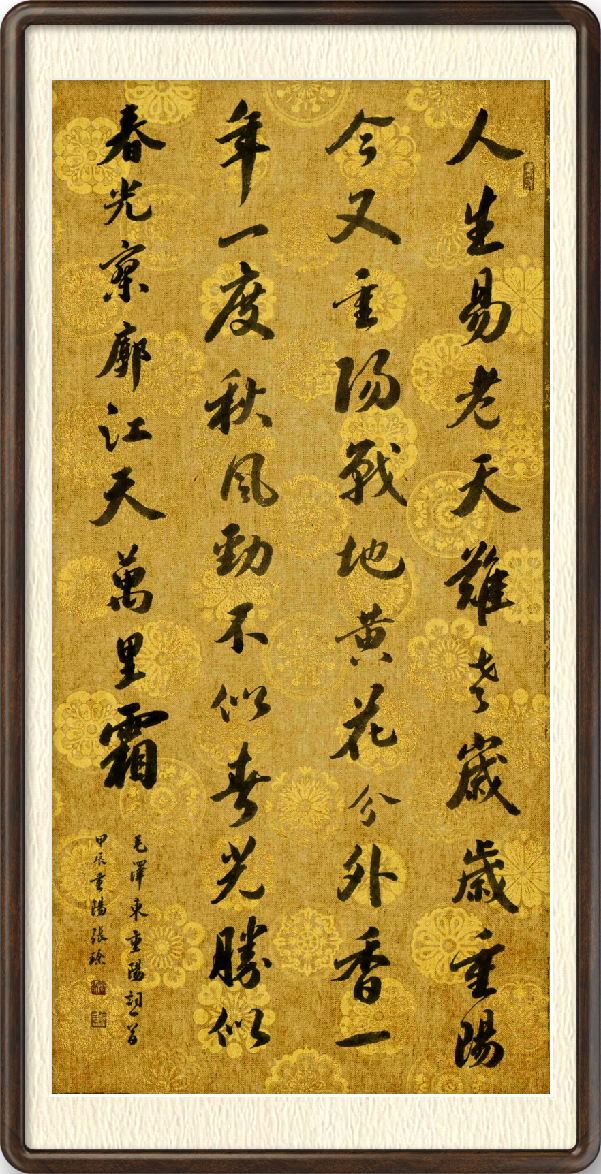 人生易老天難老歲歲重陽
今又重陽戰地黄花分外香一
年一度秋風勁不似春光勝似
春光寥廓江天萬里霜
毛澤東重陽詞一首
甲辰重陽張